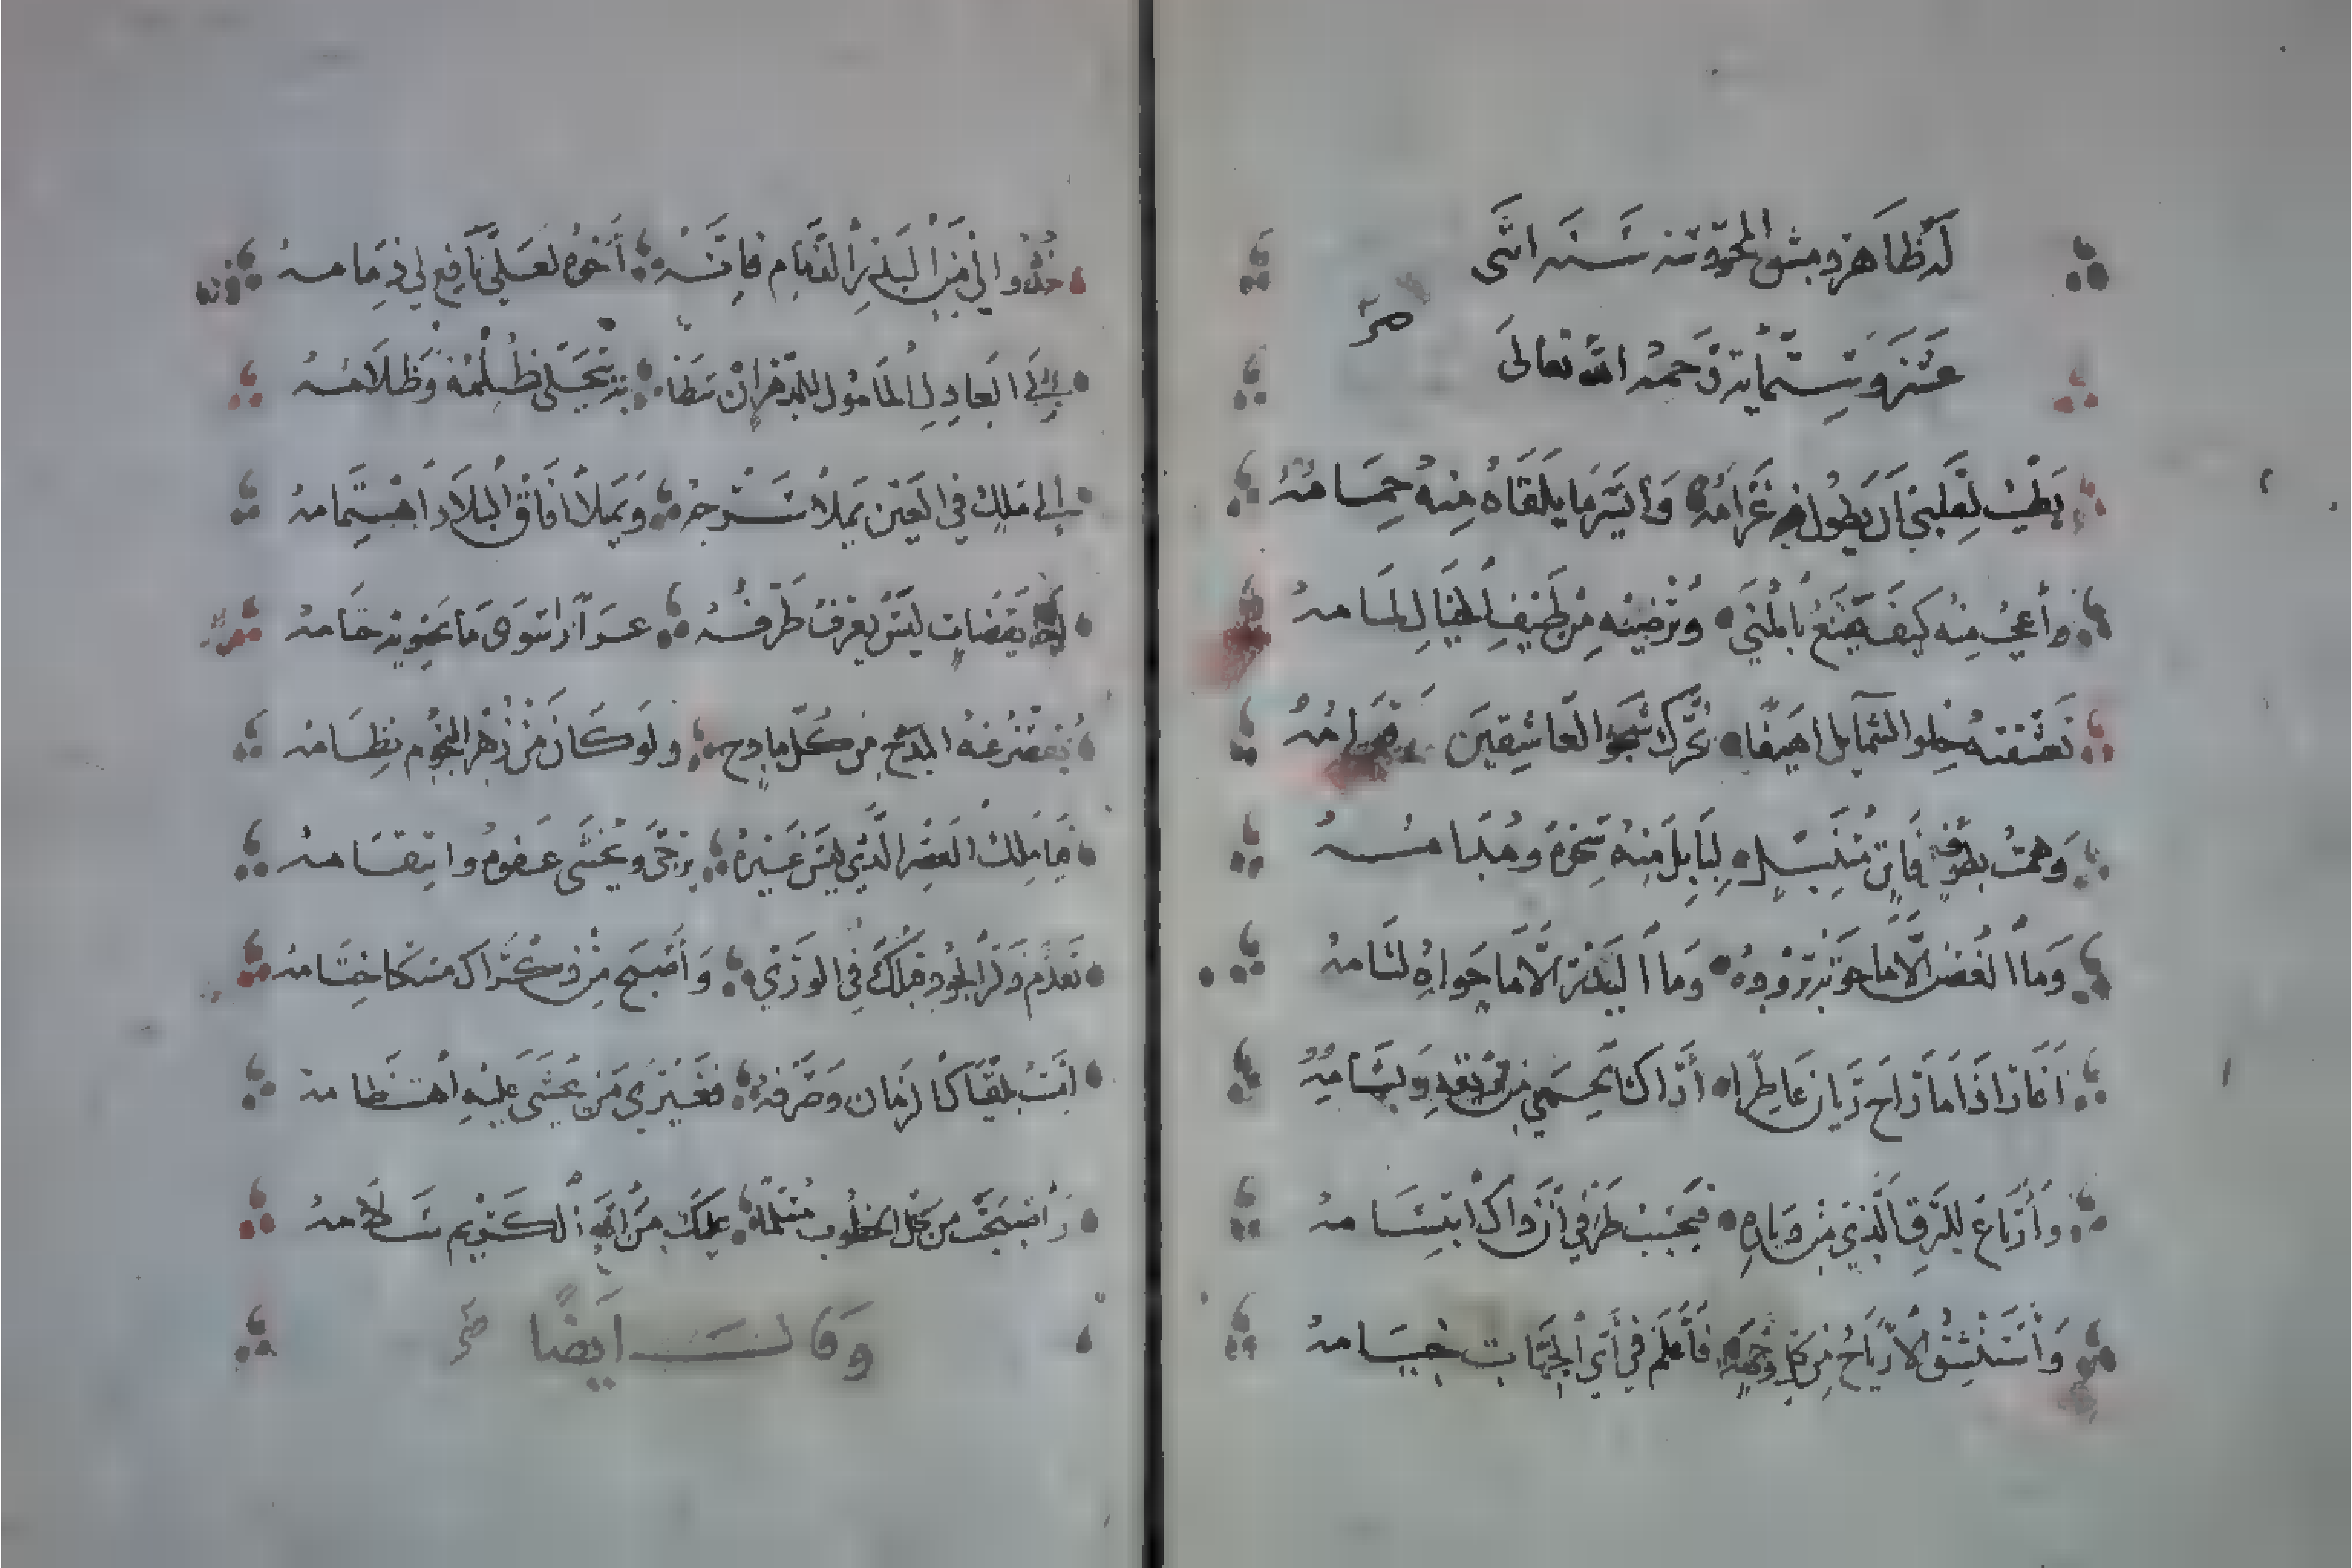 لَه ظَاهر دمشق المحروسَه سَنَه اثنَى
عَشَر وَسِتّمايَه رَحمهُ اللَّه تعَالىَ
يَطيبُ لِقلبي اَن يَطُول غَرَامُهُ وَأيسَر مَا يَلقَاهُ مِنهُ حِمَامُهُ
وَأعجبُ مِنهُ كَيفَ يَقنَعُ بالمنَى وَترضيهِ مِن طَيفِ الخيَالِ لمَامُهُ
تعَشقتهُ حُلو الشمَايل اهيَفًا يُحَرّك شَجو العَاشِقينَ
وَهمتُ بطَرفٍ فَاتِنٍ لِبَابلَ مِنهُ سِحرَهُ وَمُدَامُهُ
وَمَا الغُصنُ الّا مَا حوَتهُ بُرودهُ وَمَا البَدرُ الّا مَا حَوَاهُ لثَامُهُ
اَغَارُ اذَا مَا رَاحَ رَيان عَاطِرًا أرَاك الحِمَى مِن رِيقهِ وَبشَامُهُ
وَأرتَاعُ للبَرقِ الَّذي مِن ديَارهِ فيَحسَبُ طَرفي أنَّ ذَاكَ ابتِسَامُهُ
وَأستنشِقُ الأريَاحَ مِن كلِّ وجهَةٍ فَأعلَم في أي الجهَات خيَامُهُ
خُذُوا لي مِنَ البَدرِ التمَام فَإنّهُ أخوُهُ لعَلي نَافِعٌ لي ذِمَامُهُ
إلَى العَادِلِ المَأمُول للدّهرِ إن سَطَا بهِ يَتجَلَّى ظُلمُهُ وَظَلَامُهُ
إلى مَلِكٍ في العَين يَملأُ سَرجهُ وَيَملأُ افَاقَ البلَاد اهتِمَامُهُ
يَقظَاتٍ ليسَ يعرفُ طَرفُهُ غرَارًا سوَى مَا يَحتَويهِ حُسَامُهُ
يُقصّرُ عَنهُ المدحُ مِن كُلّ مَادِحٍ وَلو كَانَ مِن زُهرِ النجُوم نِظَامُهُ
فَيا مَلكَ العَصر الَّذي ليسَ غَيرهُ يُرجّى وَيُخشَى عَفوهُ وانتِقَامُهُ
تقدّمَ ذكرُ الجُودِ قبلَكَ في الورَى وَأصبَحَ مِن ذكرَاكَ مسكًا ختَامُهُ
أمِنتُ بلقيَاكَ الزمَان وَصَرفهُ فغَيريَ مَن يُخشَى عَليهِ اهتضَامُهُ
وَأصبَحتُ مِن كُلّ الخطُوب مُسَلّمًا عَليكَ مِنَ اللَّه الكَريم سَلَامُهُ
وَقالَ ايَضًا